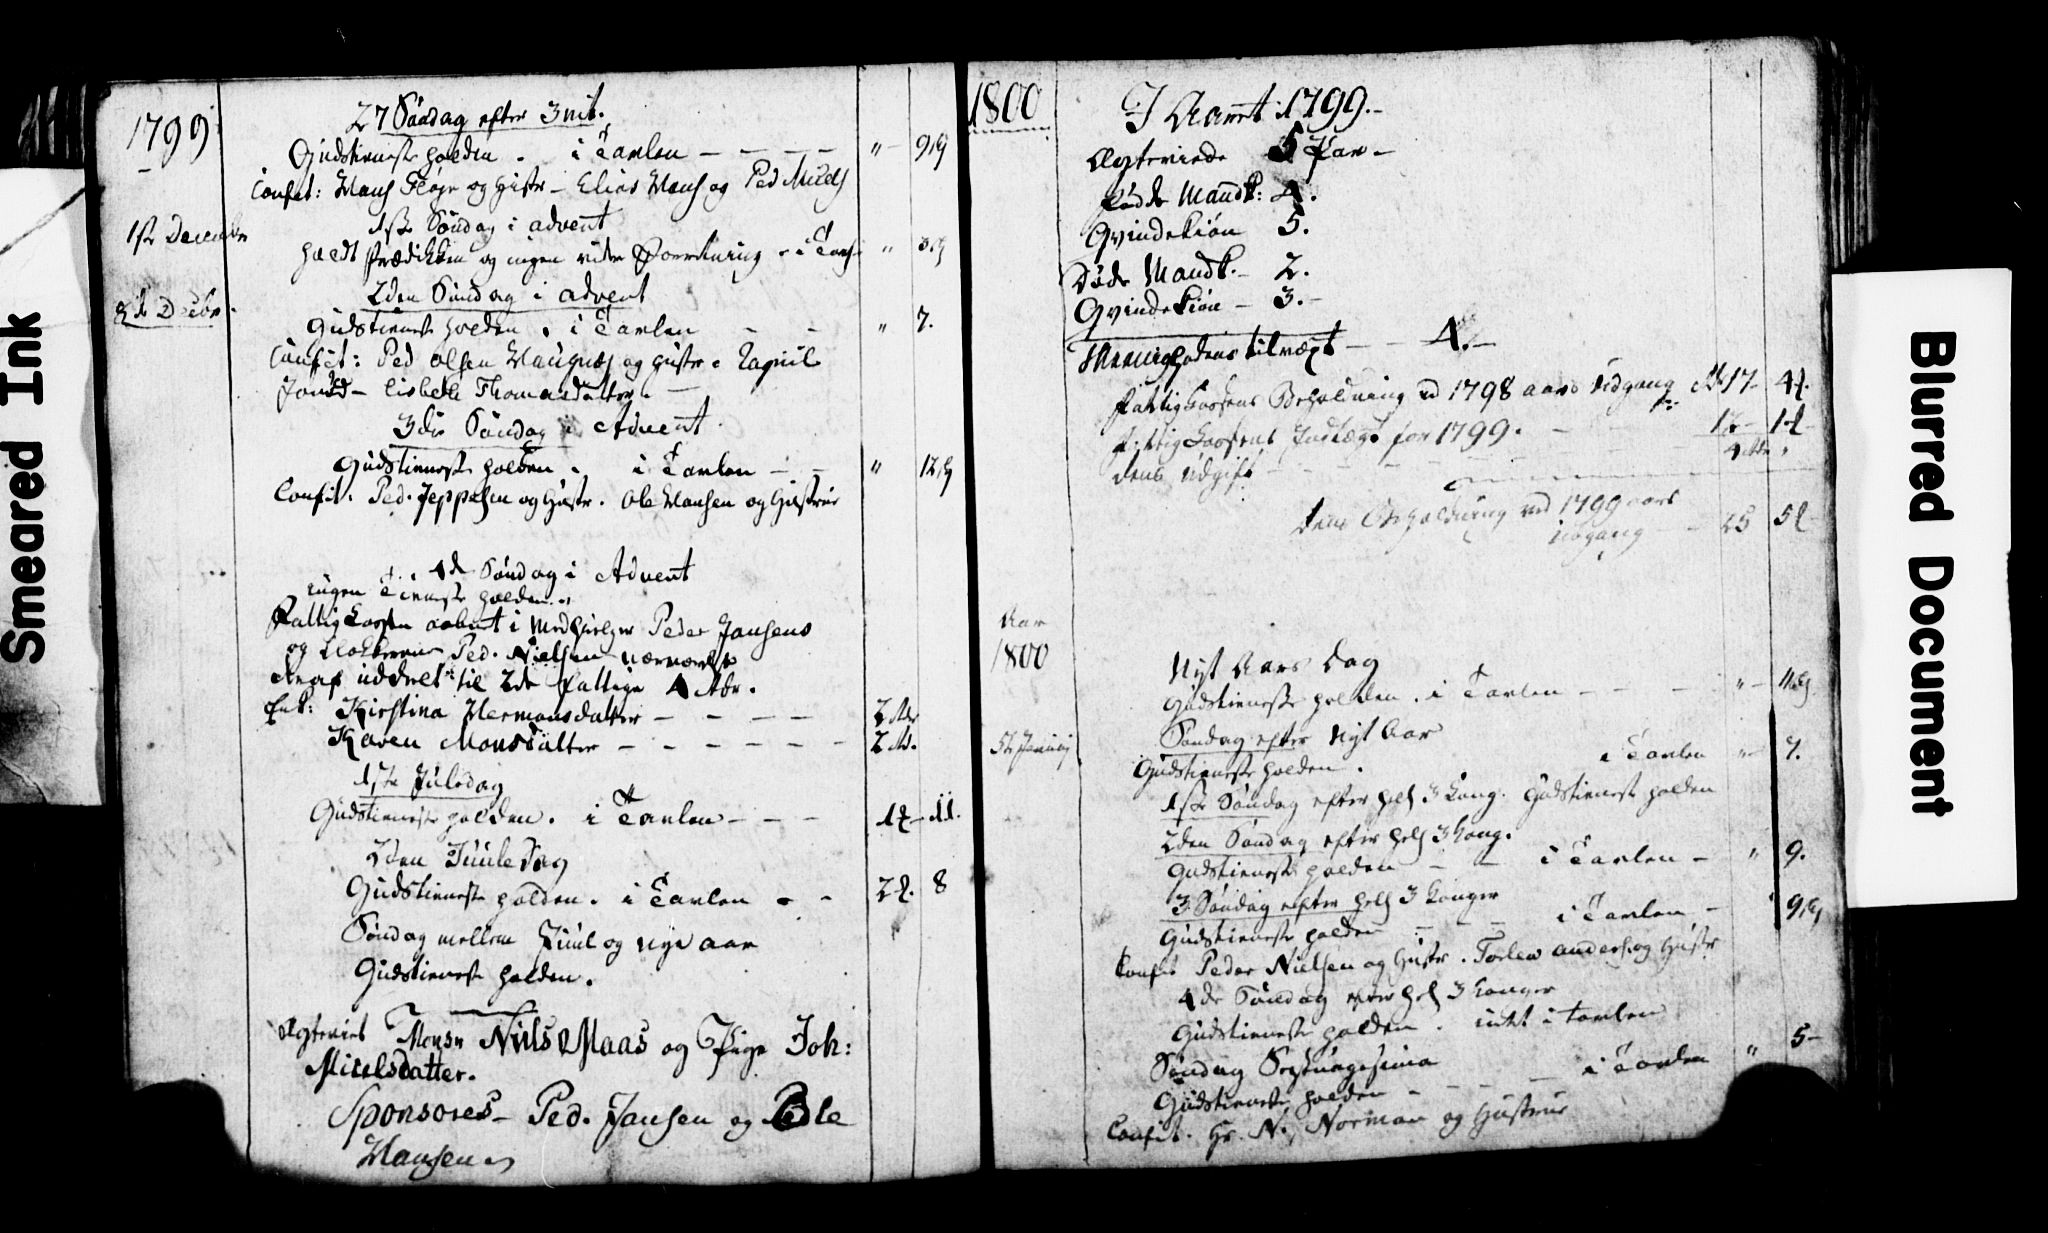 Smeared Ink
1799
27 Søndag efter 3nit.
Gudstieneste holden . i Tavlen — — — — " — 9
Confit: Hans og Hustr — Elias Hans og Ped
1ste December
1ste Søndag i advent
holdt Prædikken og ingen "
2den Søndag i advent
8de Decbr.
Gudstieneste holden . i Tavlen — — " 7.
Confit: Ped Olsen og Hustr.
Lisbeth Thomasdatter. —
3die Søndag i Advent
Gudstieneste holden . i Tavlen — — " 12
Confit. Ped. Jeppesen og Hustr. Ole Hansen og Hustrue
4de Søndag i Advent
ingen Tieneste holden.
Fattig Kassen aabnet i Medhielper Peder Jansens
og Klokkeren Ped. Nielsens nærværelse
deraf uddelt til 2de Fattige 4
Enk: Kirstina Hermansdatter — — — — 2
Karen Monsdatter — — — — — — 2
1ste Juledag
Gudstieneste holden. i Tavlen — — — 1 — 11.
2den Juuledag
Gudstieneste holden. i Tavlen — 2 . 8
Søndag mellem Juul og nye aar
Gudstieneste holden.
Ægteviet Niels Maas og Pige Joh:
Micelsdatter.
Sponsores — Ped. Jansen og
Hansen
1800
I Aaret 1799.—
Ægteviede 5 Par —
Fødde Mandk: 4.
Qvindekiøn 5.
Døde Mandk. — 2.
Qvindekiøn — 3. —
Menighedens tilvæxt — — 4. —
Fattig Kassens Beholdning ved 1798 aars Udgang 17 — 4
Fattig Kassens Indtægt for 1799. — 12 — 1
dens Udgift 4
dens Beholdning ved 1799 aars
Udgang — 25 5
Aar
1800
Nyt Aars Dag
Gudstieneste holden . i Tavlen — — — " — 11
Søndag efter Nyt Aar
5te
Gudstieneste holden . i Tavlen " 7.
1ste Søndag efter hell 3 Kong. Gudstieneste holden
2den Søndag efter hell 3 Kong.
Gudstieneste holden — — i Tavlen — " 9.
3 Søndag efter hell 3 Konger
Gudstieneste holden — — i Tavlen — 9
Confit Peder Nielsen og Hustr. Torlew Anders. og Hustr
4de Søndag efter hell 3 Konger
Gudstieneste holden . intet i Tavlen
Søndag
Gudstieneste holden — — — i Tavlen " 5 —
Confit. Hr. N. Norman og Hustrue
Blurred Document